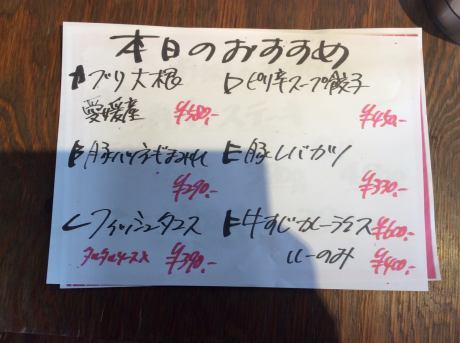 本日のおすすめ
A ブリ大根
愛媛産
¥580.-
B 豚ハツネギまみれ
¥290.-
C フィッシュタコス
タルタルソース
¥390.-
D ピリ辛スープ餃子
¥450.-
E 豚レバカツ
¥330.-
F 牛すじカレーライス ¥600.-
ルーのみ ¥400.-